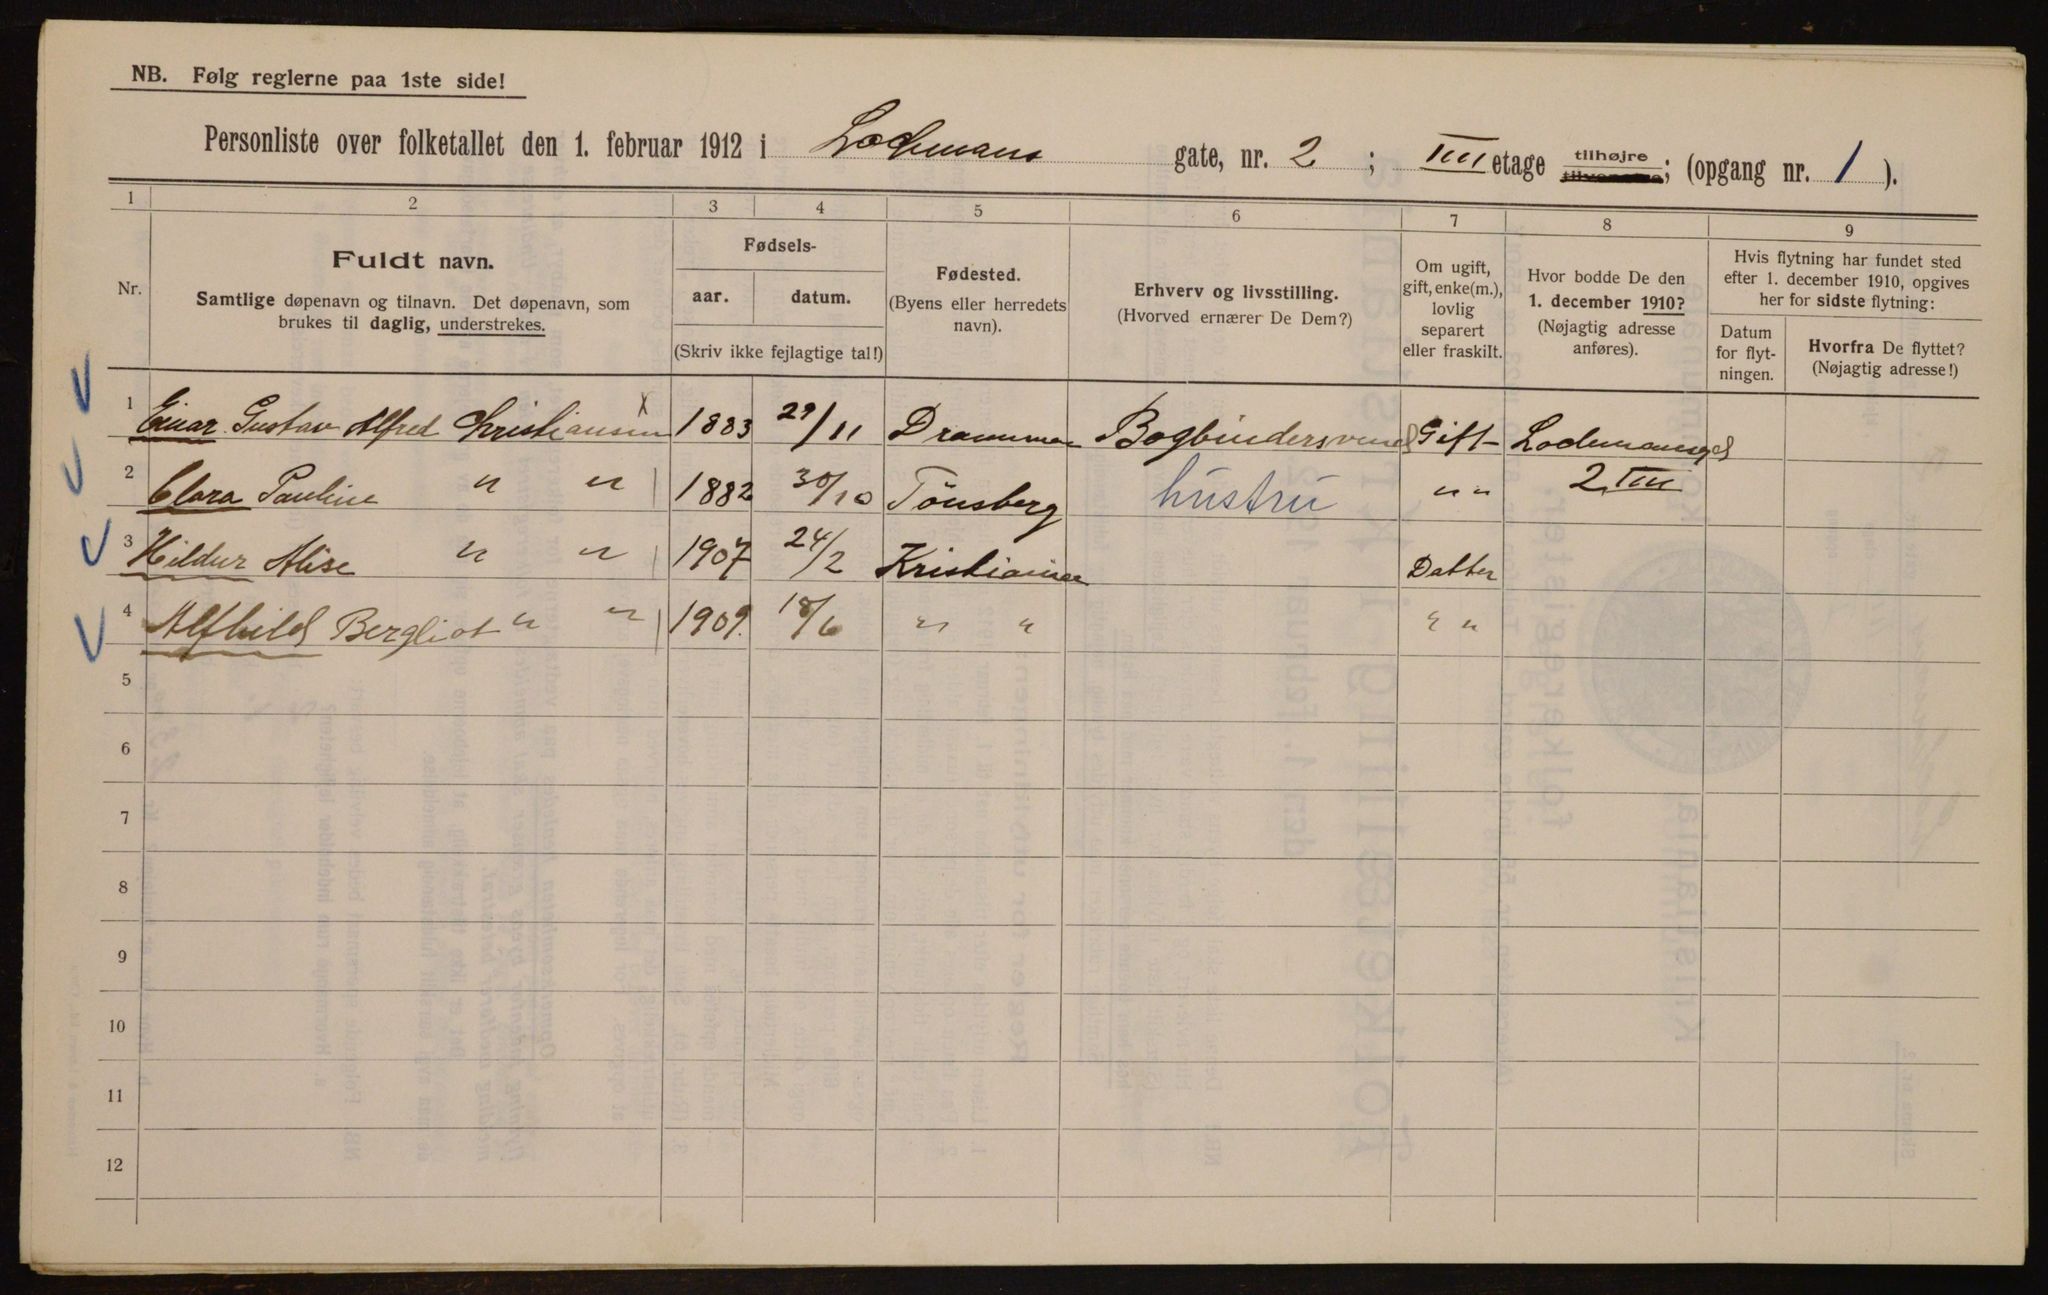 NB. Følg reglerne paa 1ste side!
Personliste over folketallet den 1. februar 1912 i Lodemans gate, nr. 2 ; IIII etage tilhøjre tilvenstre; (opgang nr. 1 ).
1 2 3 4 5 6 7 8 9
Nr.
Fuldt navn.
Samtlige døpenavn og tilnavn. Det døpenavn, som
brukes til daglig, understrekes.
Fødsels-
aar. datum.
(Skriv ikke fejlagtige tal!)
Fødested.
(Byens eller herredets
navn).
Erhverv og livsstilling.
(Hvorved ernærer De Dem?)
Om ugift,
gift, enke(m.),
lovlig
separert
eller fraskilt.
Hvor bodde De den
1. december 1910?
(Nøjagtig adresse
anføres).
Hvis flytning har fundet sted
efter 1. december 1910, opgives
her for sidste flytning:
Datum
for flyt-
ningen.
Hvorfra De flyttet?
(Nøjagtig adresse!)
1 Einar Gustav Alfred Christiansen 1883 29/11 Drammen Bogbindersvend Gift Lodemansgd
2 Clara Pauline " " 1882 30/10 Tönsberg hustru " " 2 IIII
3 Hildur Alise " " 1907 24/2 Kristiania Datter
4 Alfhild Bergliot " " 1909. 18/6 " " " "
5
6
7
8
9
10
11
12